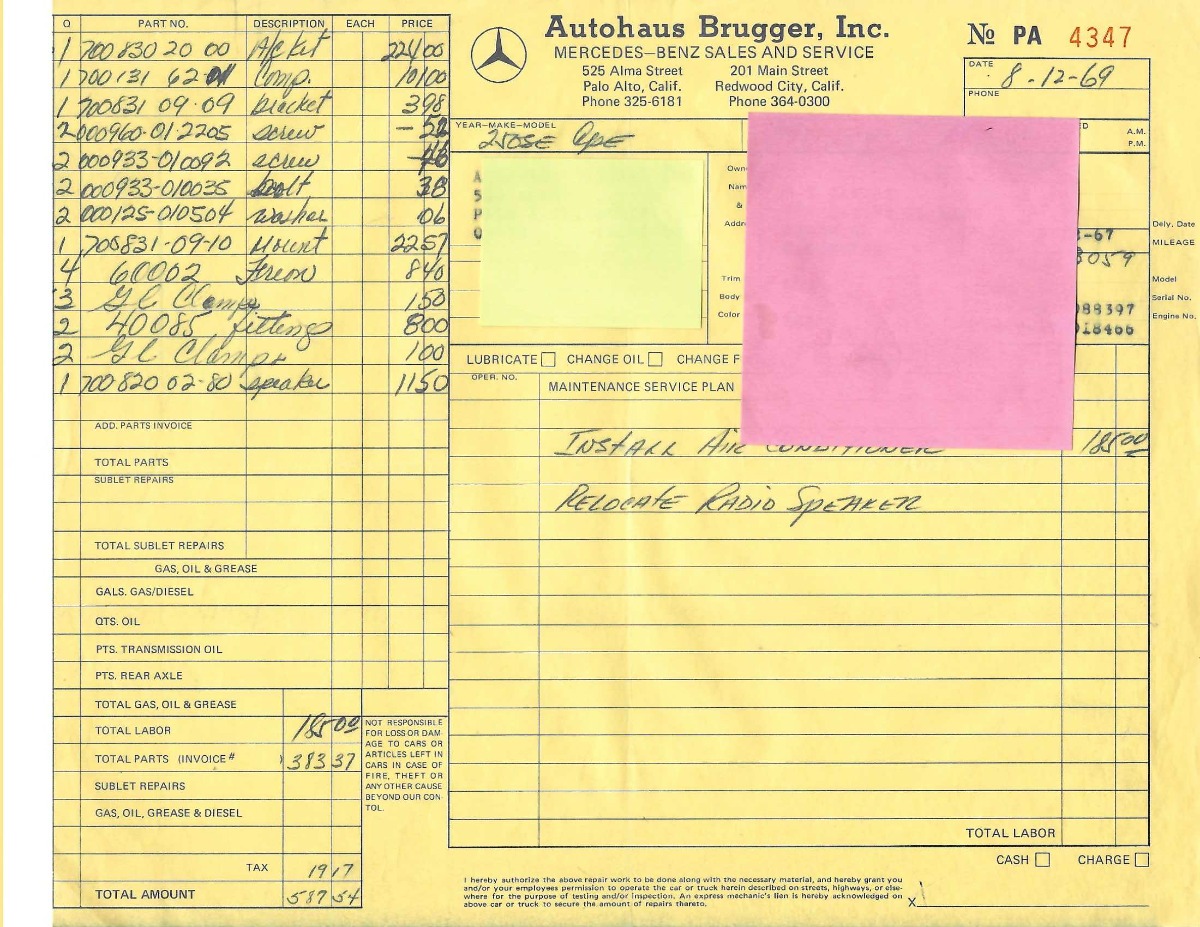 Q PART NO. DESCRIPTION EACH PRICE
1 700 830 20 00 224 00
1 700 131 62 01 Comp. 101 00
1 700831 09-09 bracket 3 98
2 000960-01-2205 screw 52
2 000933-010092 screw
2 000933-010035 bolt 38
2 000125-010504 washer 06
1 700831-09-10 Mount 22 57
4 60002 Freon 8 40
3 GL Clamps 1 50
2 40085 fittings 8 00
2 GL Clamps 1 00
1 700 820 02-80 speaker 11 50
ADD. PARTS INVOICE
TOTAL PARTS
SUBLET REPAIRS
TOTAL SUBLET REPAIRS
GAS, OIL & GREASE
GALS. GAS/DIESEL
QTS. OIL
PTS. TRANSMISSION OIL
PTS. REAR AXLE
TOTAL GAS, OIL & GREASE
TOTAL LABOR 185 00
TOTAL PARTS (INVOICE # ) 383 37
SUBLET REPAIRS
GAS, OIL, GREASE & DIESEL
TAX 19 17
TOTAL AMOUNT 587 54
NOT RESPONSIBLE
FOR LOSS OR DAM-
AGE TO CARS OR
ARTICLES LEFT IN
CARS IN CASE OF
FIRE, THEFT OR
ANY OTHER CAUSE
BEYOND OUR CON-
TOL.
Autohaus Brugger, Inc.
MERCEDES-BENZ SALES AND SERVICE
525 Alma Street 201 Main Street
Palo Alto, Calif. Redwood City, Calif.
Phone 325-6181 Phone 364-0300
No PA 4347
DATE 8-12-69
PHONE
YEAR-MAKE-MODEL
250SE Cpe
A.M.
P.M.
Name
&
Trim
Body
Color
Dely. Date -67
MILEAGE 059
Model
Serial No. 88397
Engine No. 18466
LUBRICATE CHANGE OIL CHANGE F
OPER. NO. MAINTENANCE SERVICE PLAN
INSTALL AIR CONDITIONER 185 00
RELOCATE RADIO SPEAKER
TOTAL LABOR
CASH CHARGE
I hereby authorize the above repair work to be done along with the necessary material, and hereby grant you
and/or your employees permission to operate the car or truck herein described on streets, highways, or else-
where for the purpose of testing and/or inspection. An express mechanic's lien is hereby acknowledged on
above car or truck to secure the amount of repairs thereto.
X